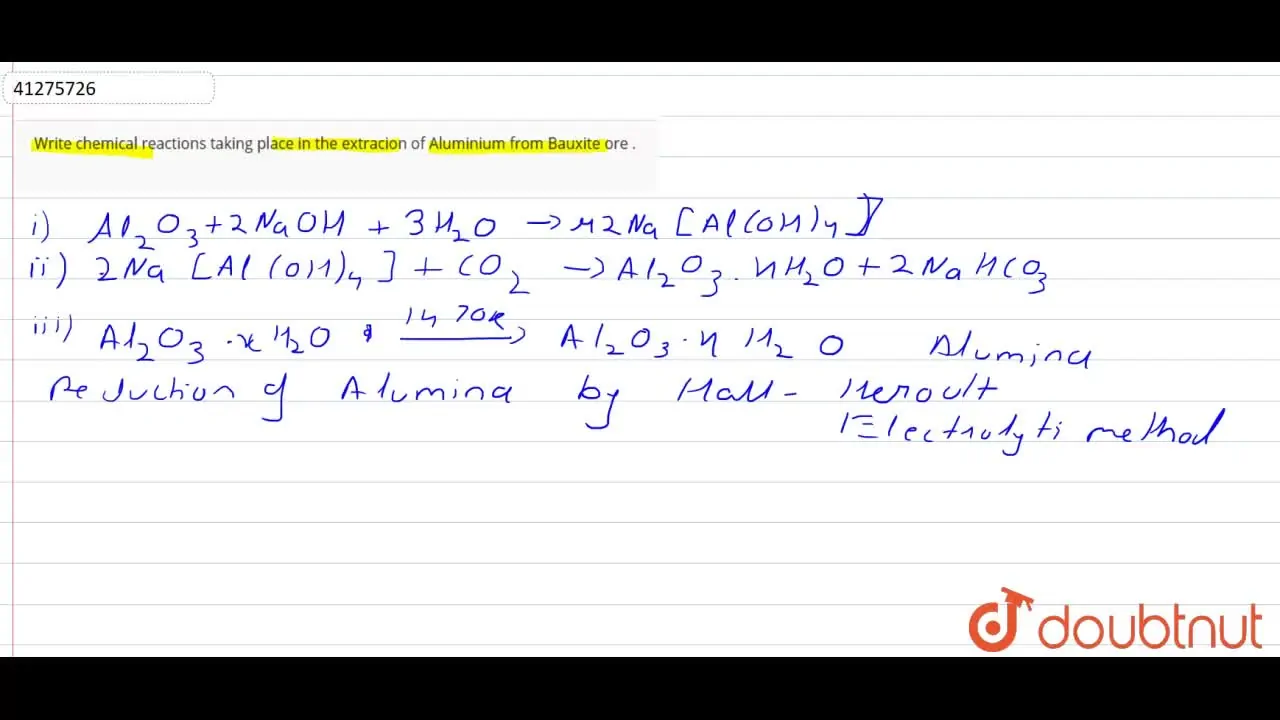 41275726
Write chemical reactions taking place in the extracion of Aluminium from Bauxite ore .
i) Al₂O₃ + 2NaOH + 3H₂O → 2Na [Al(OH)₄]
ii) 2Na [Al(OH)₄] + CO₂ → Al₂O₃·xH₂O + 2NaHCO₃
iii) Al₂O₃·xH₂O 1470K → Al₂O₃·x H₂O Alumina
Reduction of Alumina by Hall- Heroult
Electrolyti method
doubtnut